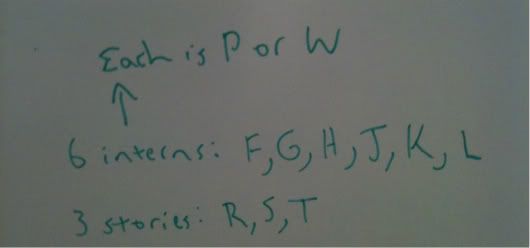 Each is P or W
6 interns: F, G, H, J, K, L
3 stories: R, S, T